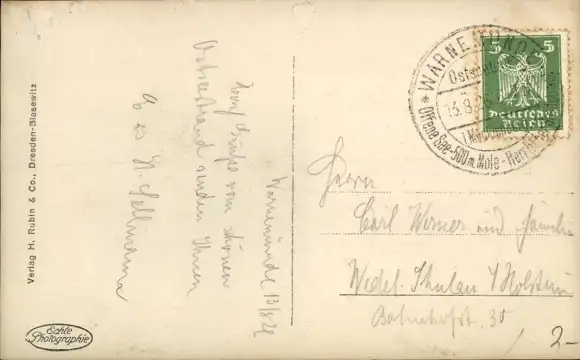 Verlag H. Rubin & Co., Dresden-Blasewitz
Echte
Photographie
Warnemünde 13/8 26
Herzl. Grüße vom schönen
Ostseestrand senden Ihnen
WARNEMÜNDE
Ostseebad
13.8.
Offene See-500 m. Mole-
5 5
Deutsches
Reich
Herrn
Carl Werner und Familie
Wedel-Schulau / Holstein
Bahnhofst. 30
2-